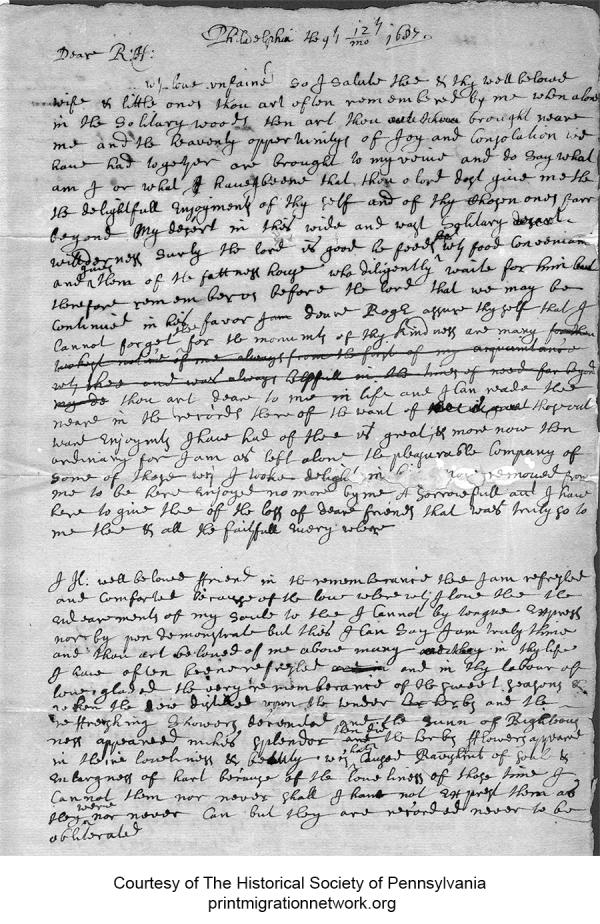 Philadelphia the 9th 12th mo 1687.
Deare R:H:
wth love unfained So I Salute thee & thy well beloved
wife & little ones thou art often remembered by me when alone
in the Solitary woods then art thou brought neare
me and the heavenly opportunitys of Joy and Consolation we
have had together are brought to my veiw and do say what
am I or what I have beene that thou o lord dost give me the
the delightfull Enjoyments of thy self and of thy Chosen ones farr
beyond My desert in this wide and wast Solitary desert
wilderness Surly the lord is good he feeds wth food Convenient
and gives them of the fattness house who diligently waite for him but
therefore remember us before the lord that we may be
Continued in his favor I am deare Rogr assure thy self that I
Cannot forget for the monumts of thy Kindness are many
notice of me always from the first of my acquaintance
wth thee and was always helpfull in the times of need far beyond
my de thou art deare to me in life and I Can reade thee
neare in the records there of the want of those out
ward Enjoymts I have had of thee is great & more now then
ordinary for I am as left alone the pleasurable Company of
Some of those I tooke delight in removed from
me to be here Enjoyed no more by me A Sorrowfull I have
here to give thee of the loss of deare friends that was truly so to
me thee & all the faithfull Every where
I H: well beloved ffriend in the rememberance thee I am refreshed
and Comforted because of the love where wth I love thee the
Endearements of my Soule to thee I Cannot by tongue Express
nor by pen demonstrate but this I Can Say I am truly thine
and thou art beloved of me above many in thy life
I have often beene refreshed and in thy labour of
love gladed the very rememberance of the sweet seasons &
when the dew distilled upon the tender herbs and the
reffreshing Showers decended and the Sunn of Righteous
ness appeared in his Splendor then did the herbs & fflowers appeare
in their loveliness & beauty wch hath Caused of Soul &
Enlargness of hart because of the loveliness of those time I
Cannot them nor never shall I have not Exprest them as
they were nor never Can but they are recorded never to be
obliterated
Courtesy of The Historical Society of Pennsylvania
printmigrationnetwork.org